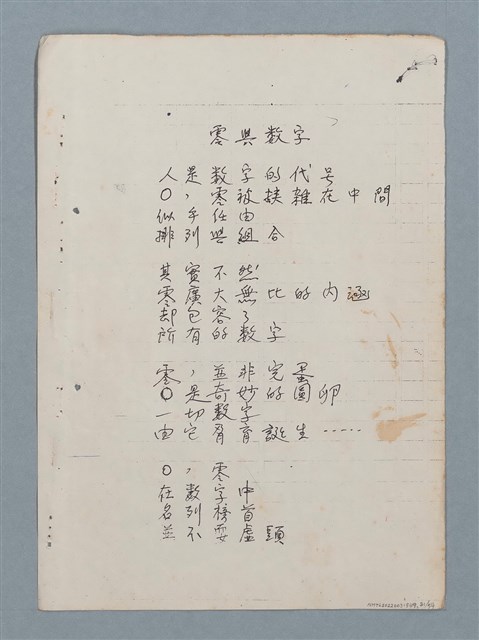 零與数字
人是数字的代号
〇，零被挾雜在中間
似乎任由
排列與組合
其實不然
零廣大無比的内涵
却包容了
所有的数字
零，並非完蛋
〇是奇妙的圓卵
一切数字
由它育誕生……
〇，零
在数字中
名列榜首
並不耍虛頭